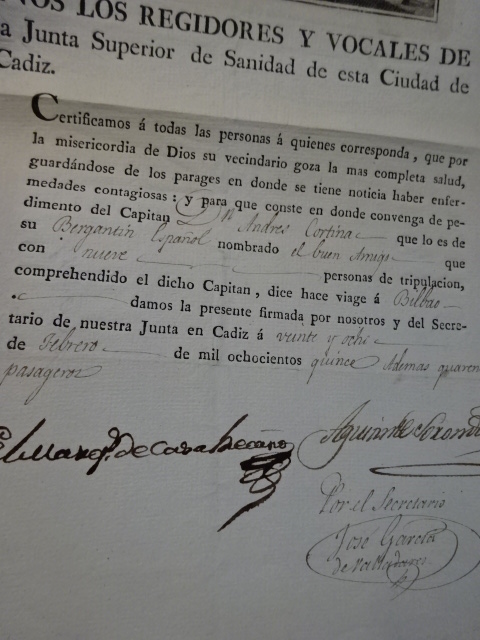 NOS LOS REGIDORES Y VOCALES DE
a Junta Superior de Sanidad de esta Ciudad de
Cadiz.
Certificamos á todas las personas á quienes corresponda, que por
la misericordia de Dios su vecindario goza la mas completa salud,
guardándose de los parages en donde se tiene noticia haber enfer-
medades contagiosas: y para que conste en donde convenga de pe-
dimento del Capitan Dn Andres Cortina que lo es de
su Bergantin Español nombrado el buen Amigo que
con nueve personas de tripulacion,
comprehendido el dicho Capitan, dice hace viage á Bilbao
. damos la presente firmada por nosotros y del Secre-
tario de nuestra Junta en Cadiz á veinte y ocho
de Febrero de mil ochocientos quince Ademas quaren
pasageros
El Marqs. de Casa Recaño
Aguirre
Por el Secretario
José García
de Valladares